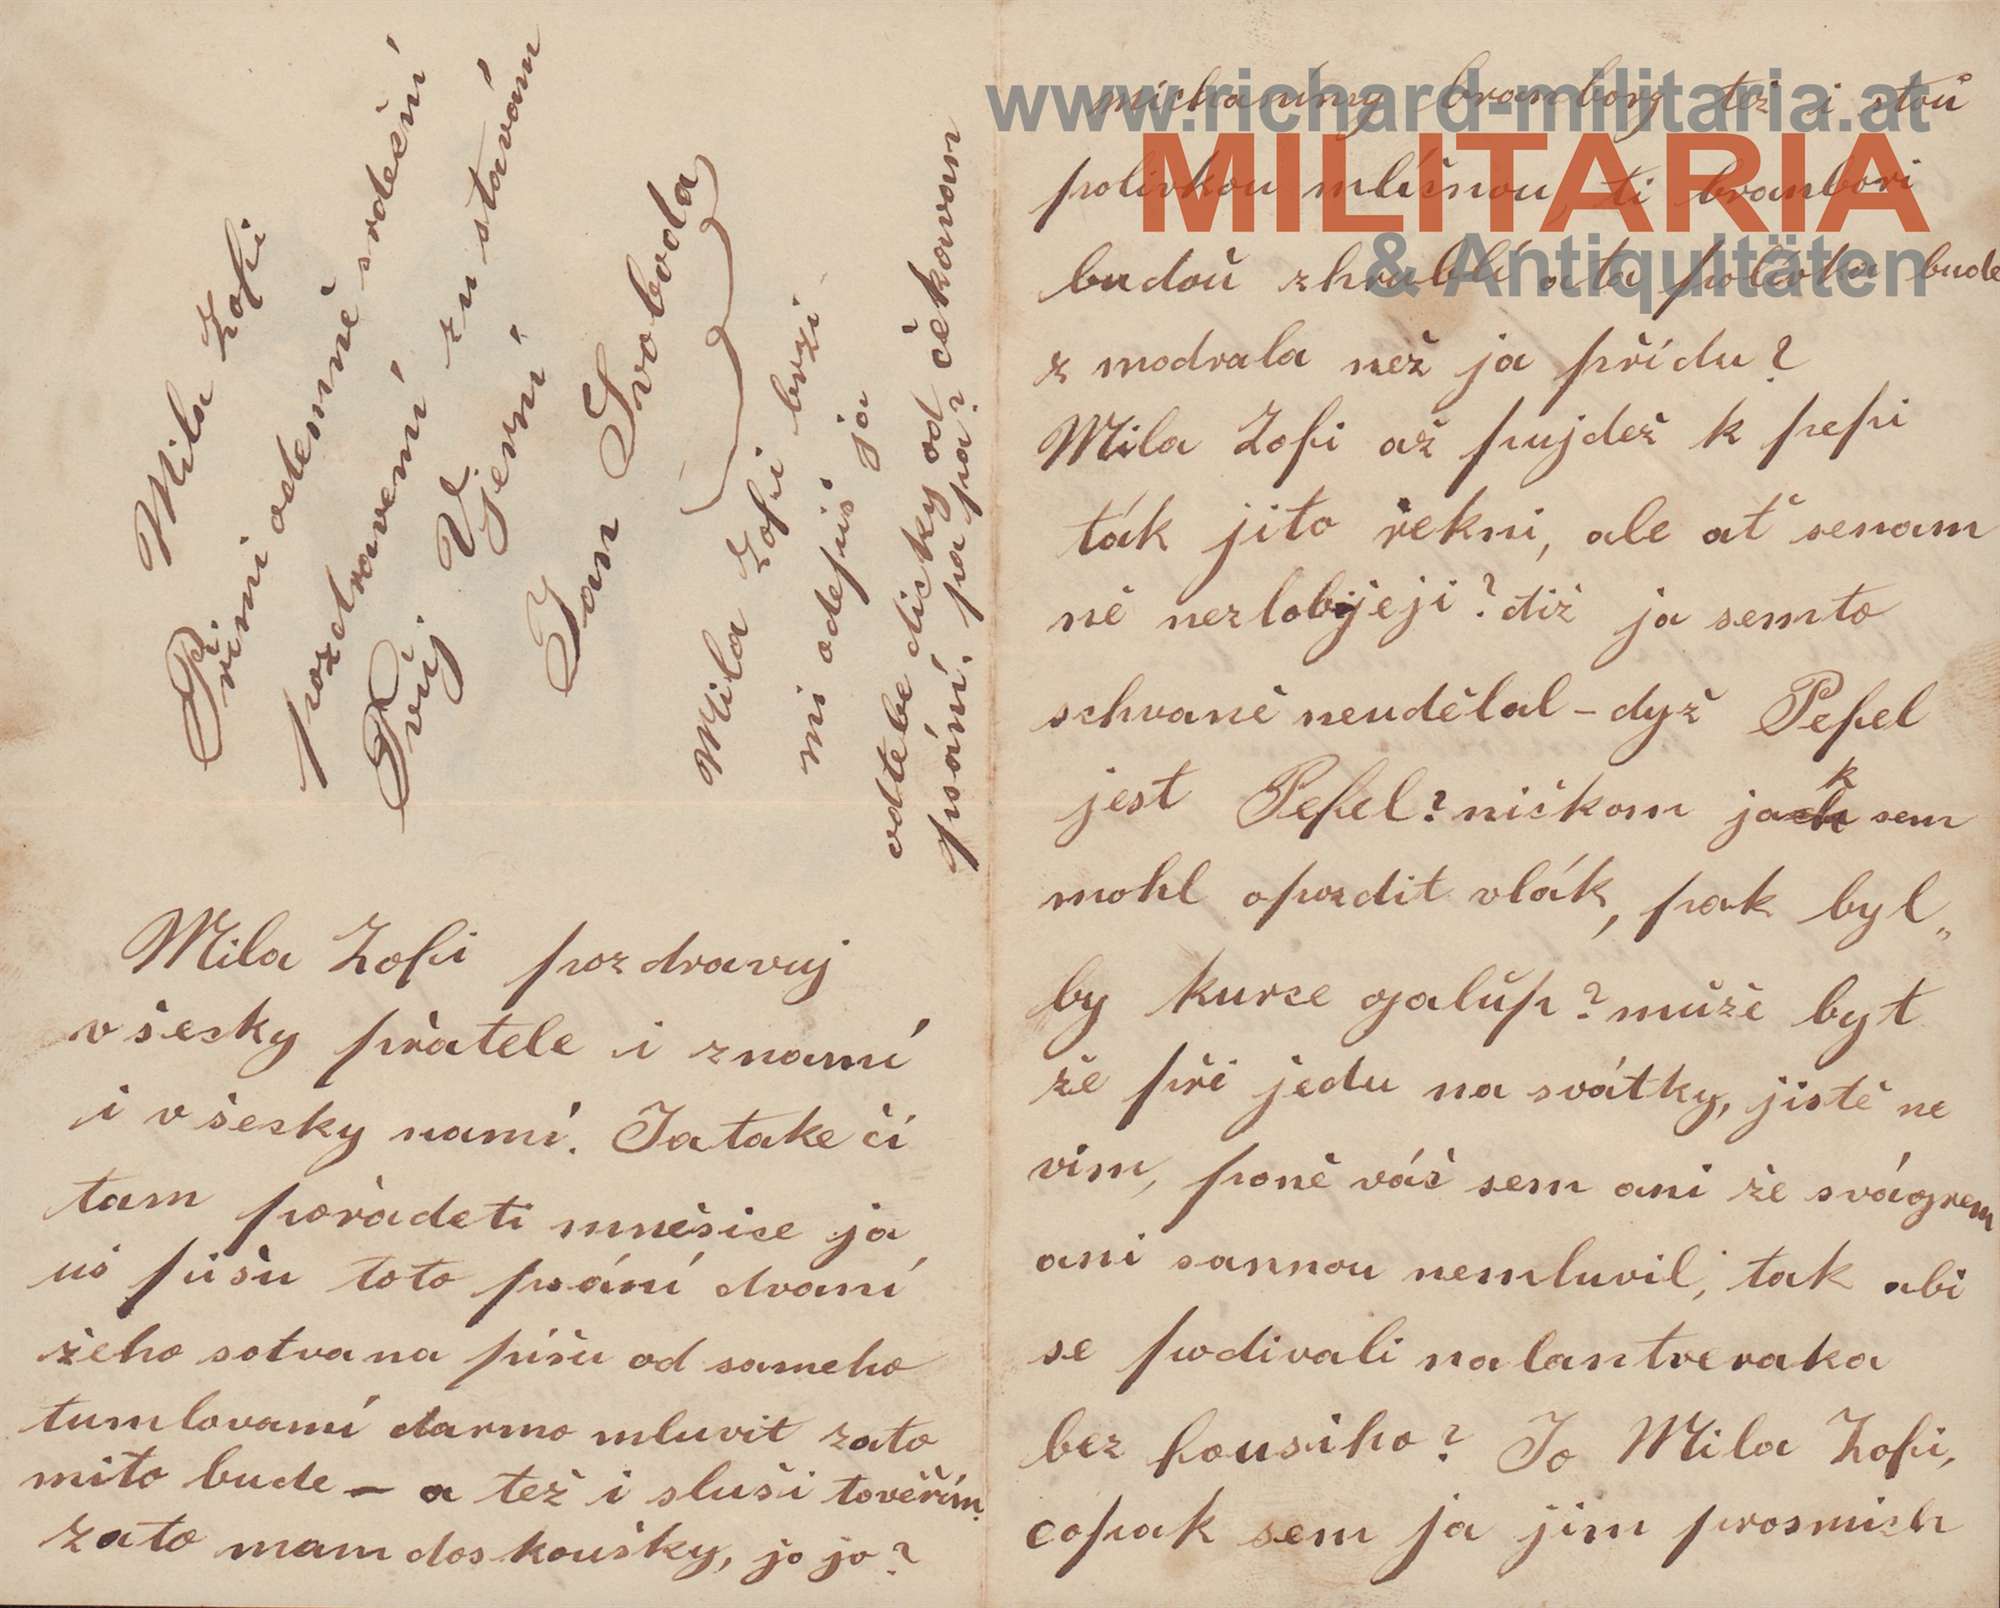 Mila Žofi
Přimi odemně srdeční
pozdravení
Tvůj Vjerní zustávám
Jan Svoboda
Mila Žofi brzi
mi odepiš ja
odtebe dicky od čekavam
psání. pa pa?
Mila Žofi pozdravuj
všecky přatele i znamí
i všecky namí. Ja take či
tam pořadeti mněsice ja
uš pišu toto psání dvaní
žeho sotva na píšu od sameho
tumlovamí darmo mluvit zato
mito bude – a též i sluši tověřím.
zato mam doskoušky, jo jo?
www.richard-militaria.at
MILITARIA
& Antiquitäten
míchaníny brambory též i stoů
polivkou mlíčnou, ti brambori
budoů zhrublí ata polivka bude
z modrala než ja přídu?
Mila Žofi až pujdeš k pepi
ták jito řekni, ale ať senam
ně nezlobijeji? diž ja semto
schvaně neudělal – dyž Pepel
jest Pepel? ničkom jak sem
mohl opozdit vlák, pak byl„
by kurce galúp? může byt
že při jedu na svátky, jistě ne
vim, poně váč sem ani že svágrem
ani sannou nemluvil, tak abi
se podivali nalantveraka
bez housiho? Jo Mila Žofi,
copak sem ja jim prosmich